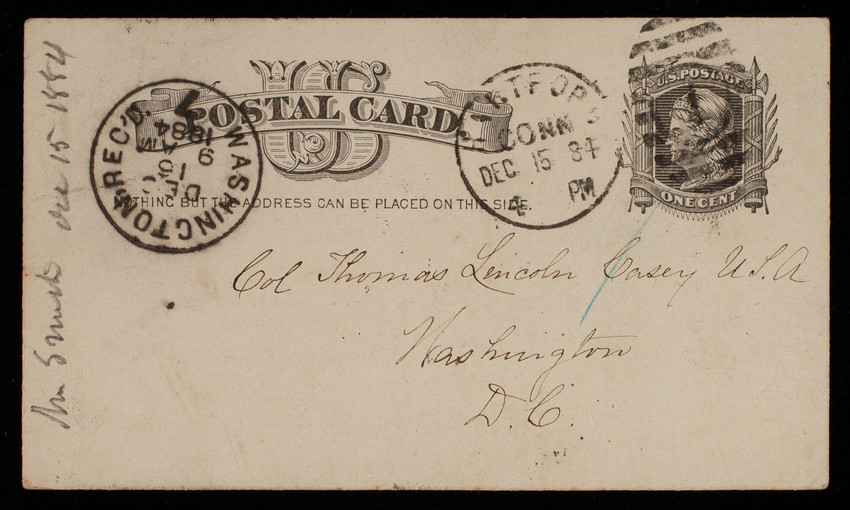 US
POSTAL CARD
NOTHING BUT THE ADDRESS CAN BE PLACED ON THIS SIDE.
WASHINGTON, REC'D.
DEC
16
1884
HARTFORD
CONN
DEC 15 84
4 PM
U.S. POSTAGE
ONE CENT
Col Thomas Lincoln Casey U.S.A
Washington
D.C.
Dec 15 1884